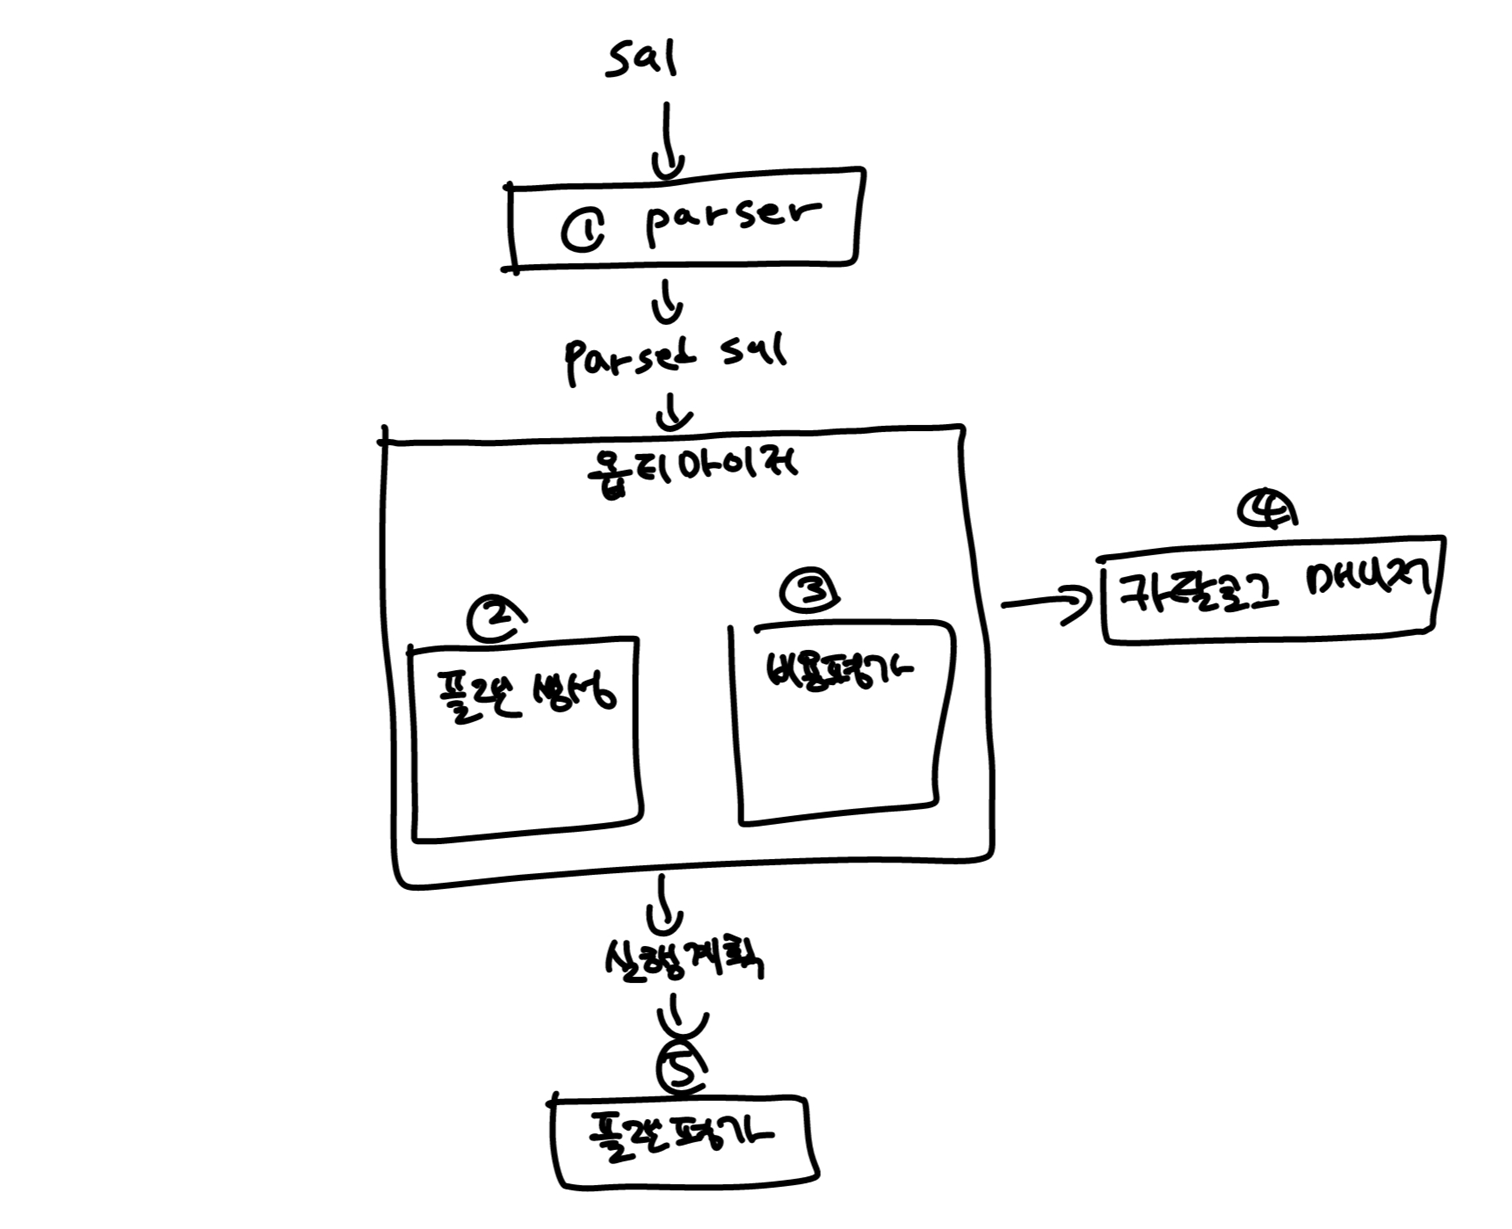 sql
① parser
Parsed sql
옵티마이저
② ③ ④
플랜 생성
비용평가
카탈로그 매니저
실행계획
⑤
플랜평가